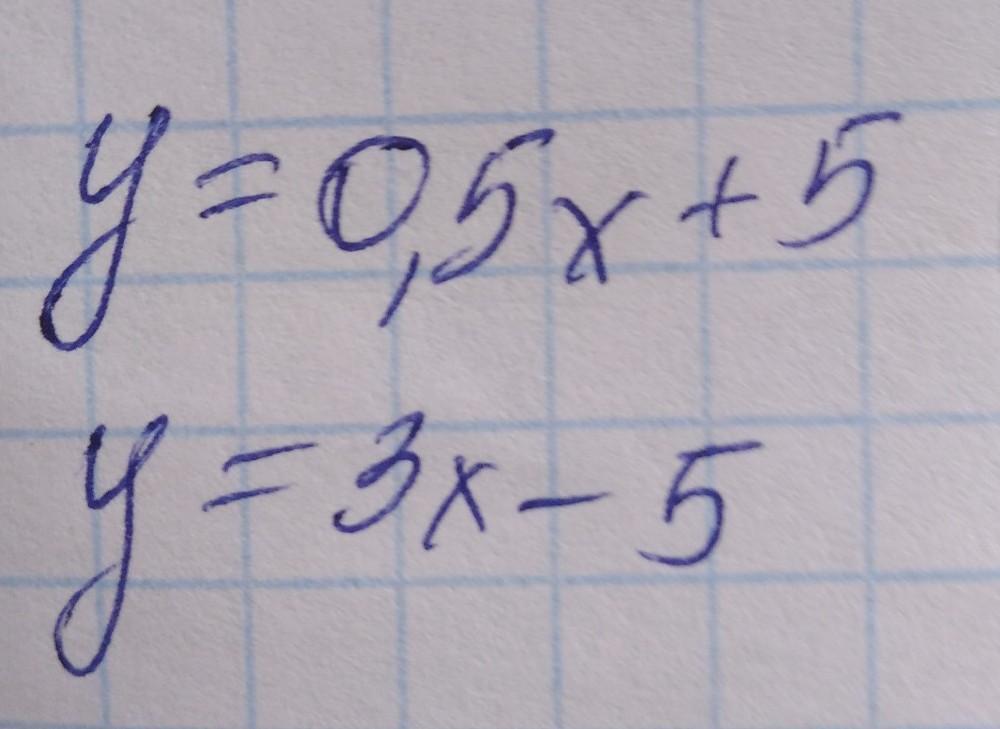 y = 0,5x + 5
y = 3x - 5